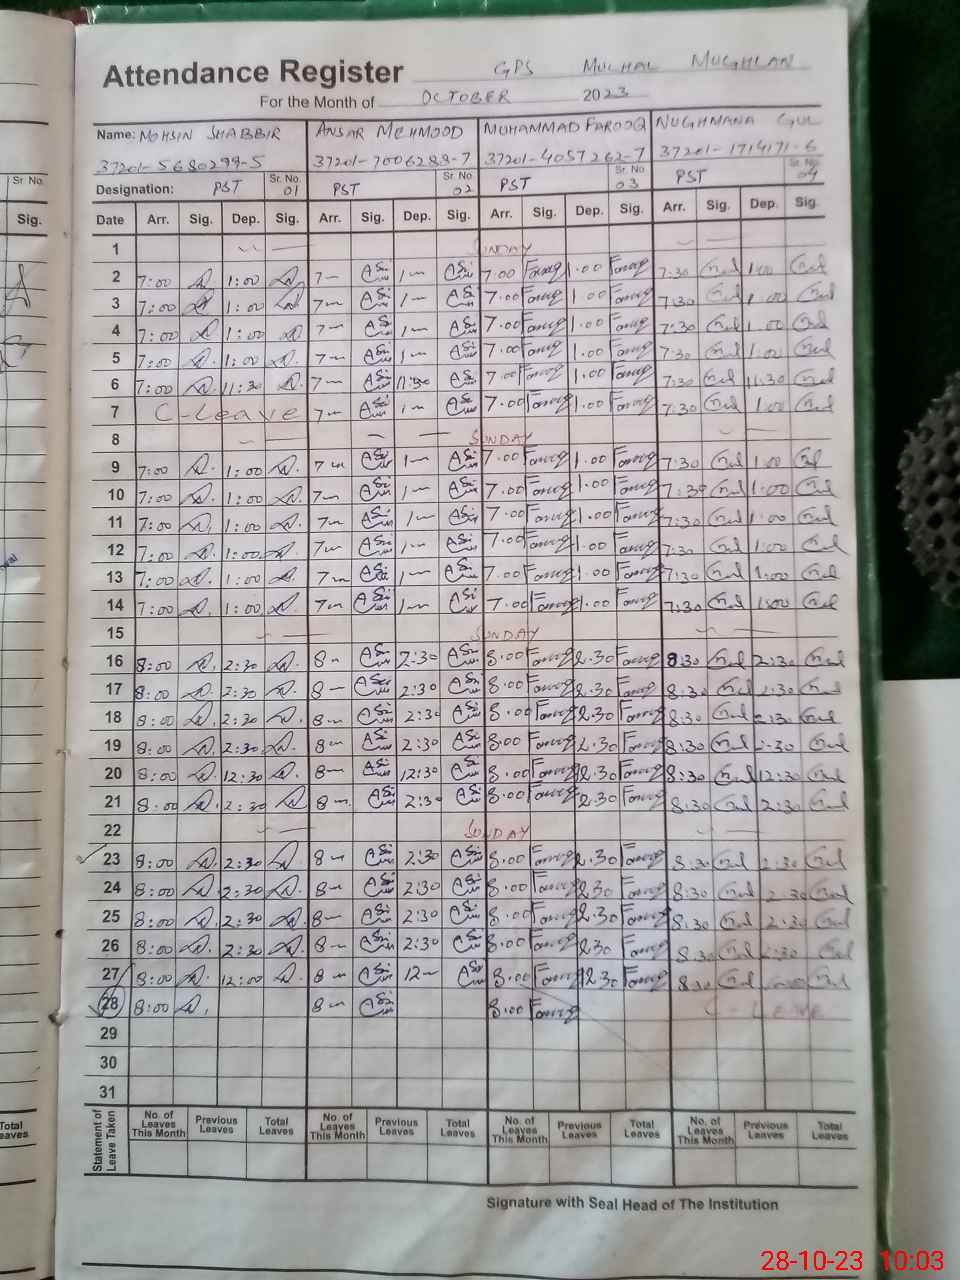 Attendance Register GPS MULHAL MUGHLAN
For the Month of OCTOBER 2023
Name: MOHSIN SHABBIR ANSAR MEHMOOD MUHAMMAD FAROOQ NUGHMANA GUL
37201-5680299-5 37201-7006288-7 37201-4057262-7 37201-1714171-6
Designation: PST Sr. No. 01 PST Sr. No. 02 PST Sr. No. 03 PST Sr. No. 04
Date Arr. Sig. Dep. Sig. Arr. Sig. Dep. Sig. Arr. Sig. Dep. Sig. Arr. Sig. Dep. Sig.
1 SUNDAY
2 7:00 1:00 7 1 7.00 Farooq 1.00 Farooq 7:30 Gul 1:00 Gul
3 7:00 1:00 7 1 7.00 Farooq 1.00 Farooq 7:30 Gul 1:00 Gul
4 7:00 1:00 7 1 7.00 Farooq 1.00 Farooq 7:30 Gul 1:00 Gul
5 7:00 1:00 7 1 7.00 Farooq 1.00 Farooq 7:30 Gul 1:00 Gul
6 7:00 11:30 7 11:30 7.00 Farooq 1.00 Farooq 7:30 Gul 11:30 Gul
7 C-Leave 7 1 7.00 Farooq 1.00 Farooq 7:30 Gul 1:00 Gul
8 SUNDAY
9 7:00 1:00 7 1 7.00 Farooq 1.00 Farooq 7:30 Gul 1:00 Gul
10 7:00 1:00 7 1 7.00 Farooq 1.00 Farooq 7:30 Gul 1:00 Gul
11 7:00 1:00 7 1 7.00 Farooq 1.00 Farooq 7:30 Gul 1:00 Gul
12 7:00 1:00 7 1 7.00 Farooq 1.00 Farooq 7:30 Gul 1:00 Gul
13 7:00 1:00 7 1 7.00 Farooq 1.00 Farooq 7:30 Gul 1:00 Gul
14 7:00 1:00 7 1 7.00 Farooq 1.00 Farooq 7:30 Gul 1:00 Gul
15 SUNDAY
16 8:00 2:30 8 2:30 8.00 Farooq 2.30 Farooq 8:30 Gul 2:30 Gul
17 8:00 2:30 8 2:30 8.00 Farooq 2.30 Farooq 8:30 Gul 2:30 Gul
18 8:00 2:30 8 2:30 8.00 Farooq 2.30 Farooq 8:30 Gul 2:30 Gul
19 8:00 2:30 8 2:30 8.00 Farooq 2.30 Farooq 8:30 Gul 2:30 Gul
20 8:00 12:30 8 12:30 8.00 Farooq 12.30 Farooq 8:30 Gul 12:30 Gul
21 8:00 2:30 8 2:30 8.00 Farooq 2.30 Farooq 8:30 Gul 2:30 Gul
22 SUNDAY
23 8:00 2:30 8 2:30 8.00 Farooq 2.30 Farooq 8:30 Gul 2:30 Gul
24 8:00 2:30 8 2:30 8.00 Farooq 2.30 Farooq 8:30 Gul 2:30 Gul
25 8:00 2:30 8 2:30 8.00 Farooq 2.30 Farooq 8:30 Gul 2:30 Gul
26 8:00 2:30 8 2:30 8.00 Farooq 2.30 Farooq 8:30 Gul 2:30 Gul
27 8:00 12:00 8 12 8.00 Farooq 12.30 Farooq 8:30 Gul Gul
28 8:00 8 8.00 Farooq C-LEAVE
29
30
31
Statement of Leave Taken No. of Leaves This Month Previous Leaves Total Leaves No. of Leaves This Month Previous Leaves Total Leaves No. of Leaves This Month Previous Leaves Total Leaves No. of Leaves This Month Previous Leaves Total Leaves
Signature with Seal Head of The Institution
Sr. No.
Sig.
Total Leaves
28-10-23 10:03